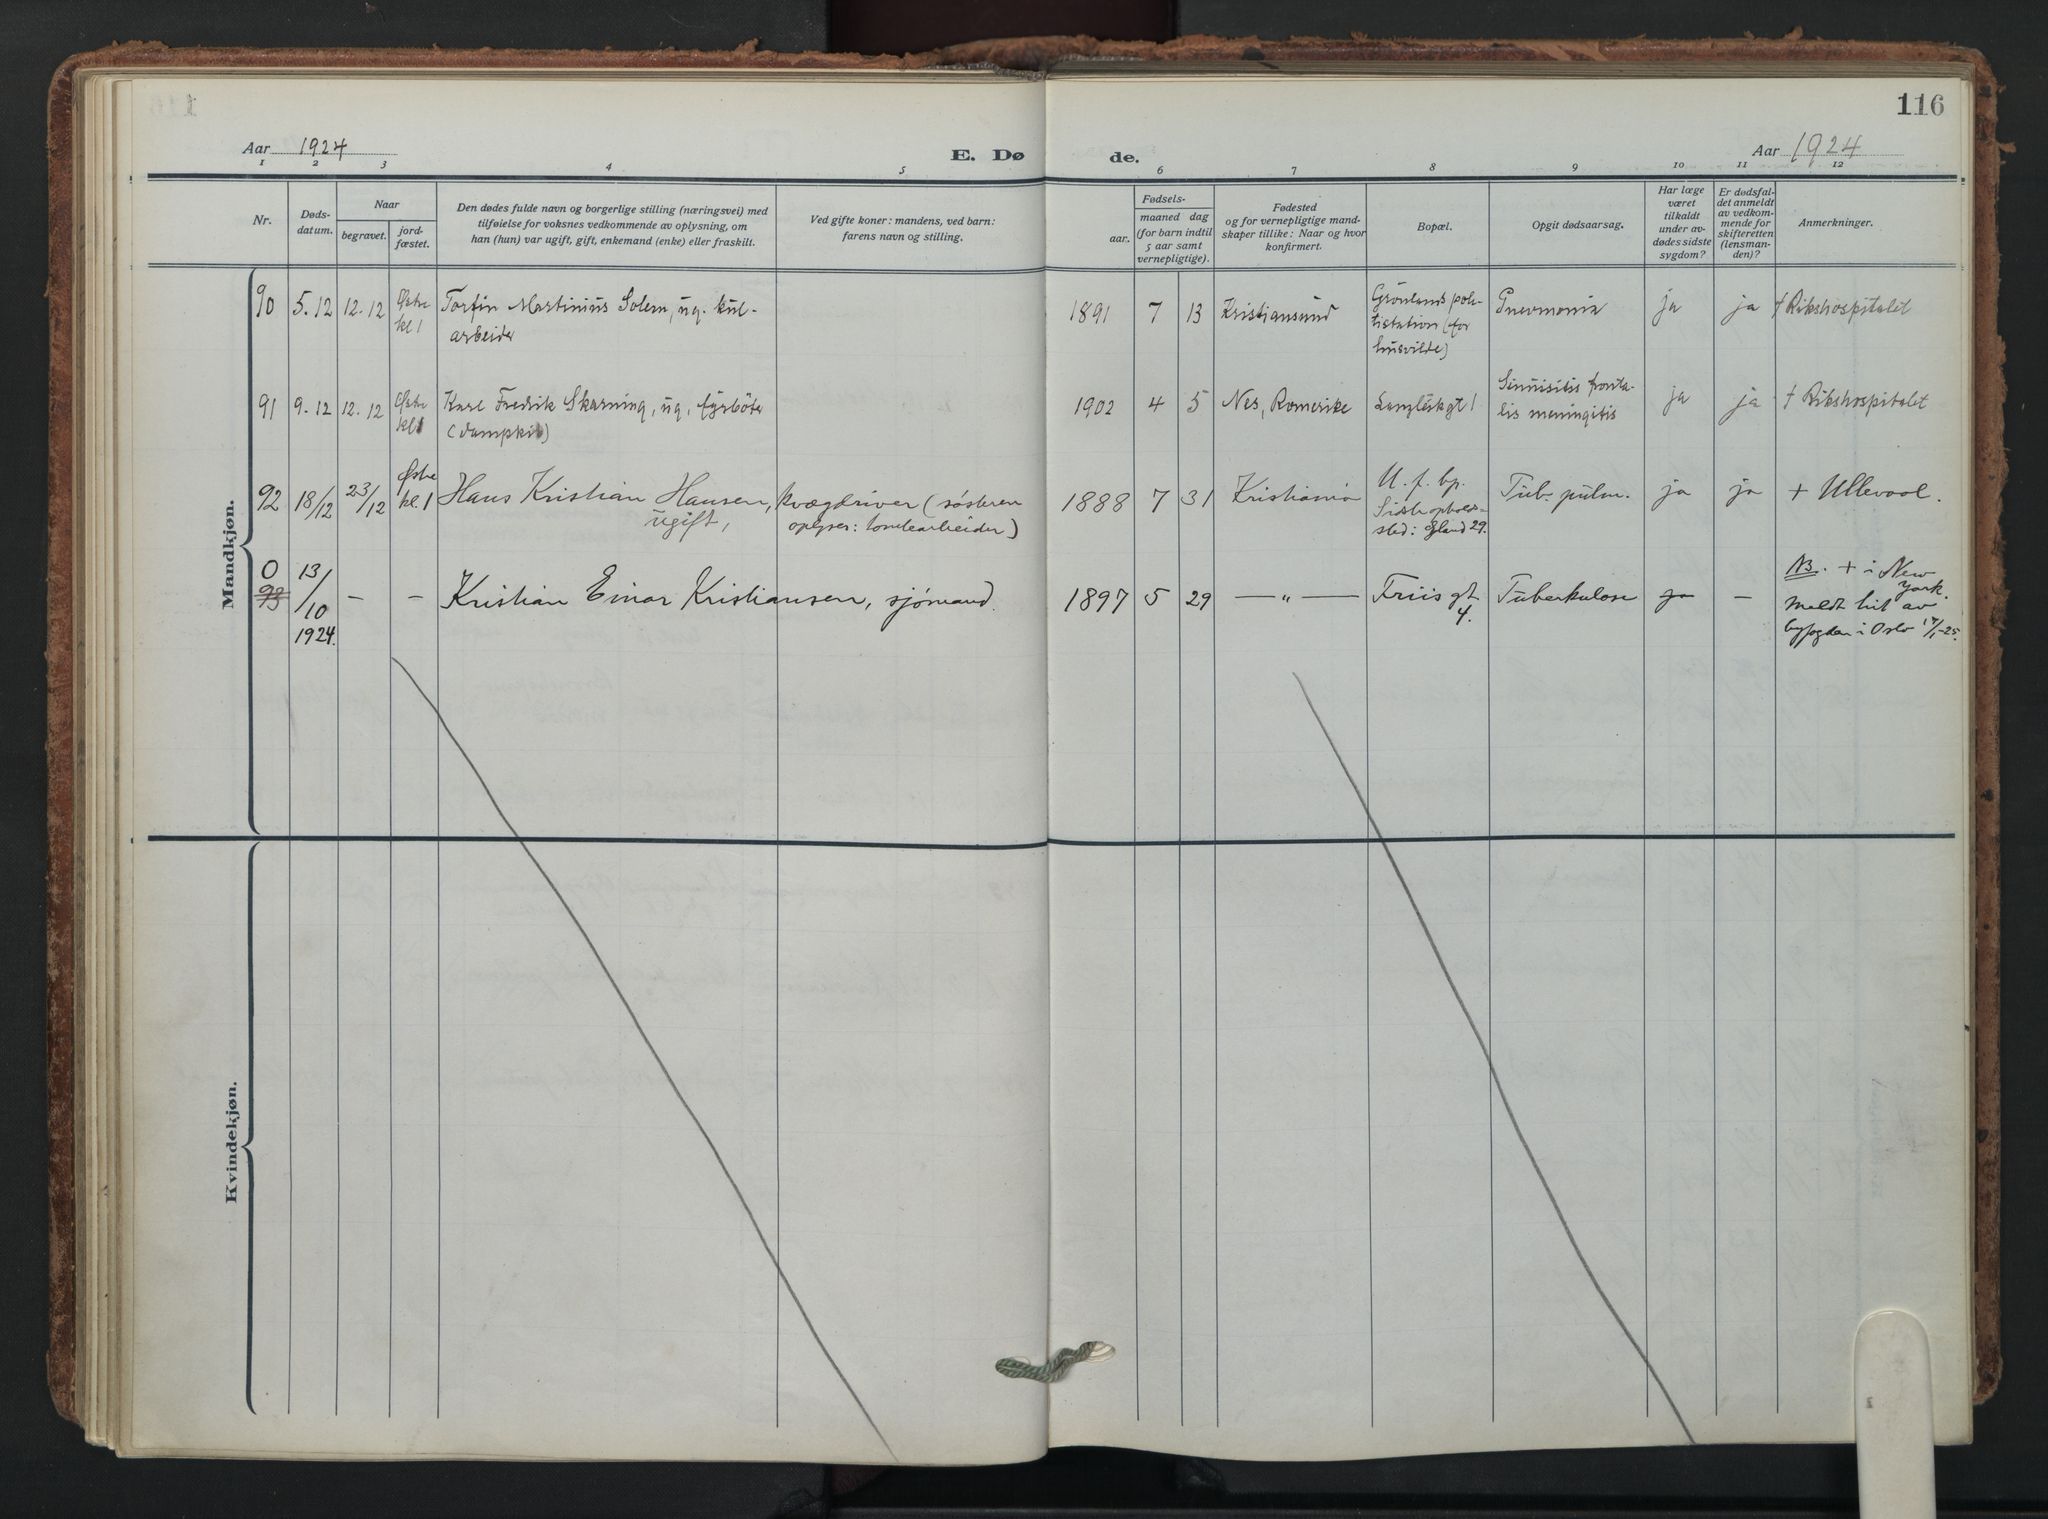 116
Aar 1924
E. Døde.
Aar 1924
1 2 3 4 5 6 7 8 9 10 11 12
Nr.
Døds-
datum.
Naar
begravet.
jord-
fæstet.
Den dødes fulde navn og borgerlige stilling (næringsvei) med
tilføielse for voksnes vedkommende av oplysning, om
han (hun) var ugift, gift, enkemand (enke) eller fraskilt.
Ved gifte koner: mandens, ved barn:
farens navn og stilling.
Fødsels-
aar.
maaned dag
(for barn indtil
5 aar samt
vernepligtige).
Fødested
og for vernepligtige mand-
skaper tillike: Naar og hvor
konfirmert.
Bopæl.
Opgit dødsaarsag.
Har læge
været
tilkaldt
under av-
dødes sidste
sygdom?
Er dødsfal-
det anmeldt
av vedkom-
mende for
skifteretten
(lensman-
den)?
Anmerkninger.
Mandkjøn.
90 5.12 12.12 Østre
kl 1
Torfin Martinius Solem, ug. kul-
arbeider
1891 7 13 Kristiansund
Grønlands poli-
tistation (for
husvilde)
Pnevmonia ja ja † Rikshospitalet
91 9.12 12.12 Østre
kl 1
Karl Fredrik Skarning, ug, fyrbøter
(dampkil)
1902 4 5 Nes, Romerike Langleikgt 1
Sinuisitis fronta-
lis meningitis
ja ja † Rikshospitalet
92 18/12 23/12 Østre
kl. 1
Hans Kristian Hansen,
ugift,
kvægdriver (søsteren
oplyser: tomtearbeider)
1888 7 31 Kristiania
U. f. bp.
Sidste opholds-
sted: Grland 29.
Tub. pulm. ja ja + Ullevaal.
0
93
13/10
1924.
— —
Kristian Einar Kristiansen, sjømand.
1897 5 29 — „ —
Friis gt.
4.
Tuberkulose ja —
NB. + i New
York.
Meldt hit av
byfogden i Oslo 17/1-25.
Kvindekjøn.